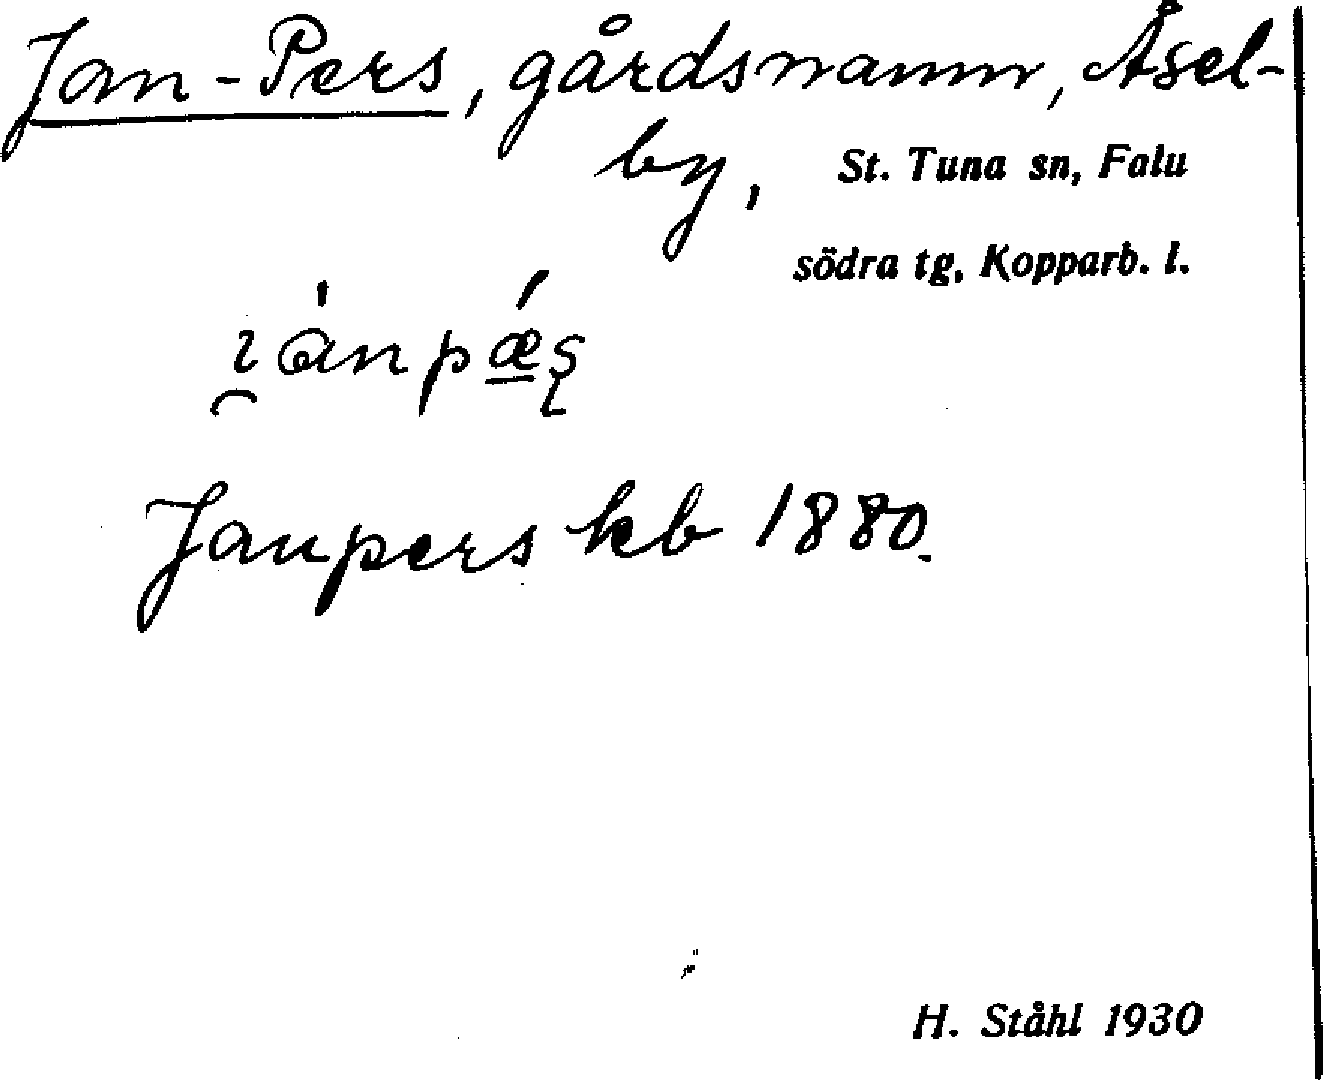 Jan-Pers, gårdsnamn, Åsel-
by, St. Tuna sn, Falu
södra tg, Kopparb. l.
Janpers kb 1880.
H. Ståhl 1930